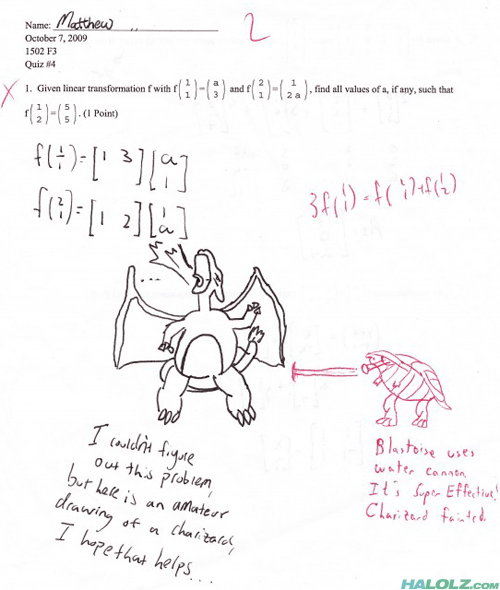 Name: Matthew
2
October 7, 2009
1502 F3
Quiz #4
X 1. Given linear transformation f with f(1 1)=(a 3) and f(2 1)=(1 2a), find all values of a, if any, such that
f(1 2)=(5 5). (1 Point)
f(1 1)=[1 3][a 1]
f(2 1)=[1 2][1 a]
3f(1 1)=f(2 1)+f(1 2)
...
I couldn't figure
out this problem,
but here is an amateur
drawing of a charizard,
I hope that helps...
Blastoise uses
water cannon
It's Super Effective!
Charizard fainted.
HALOLZ.COM